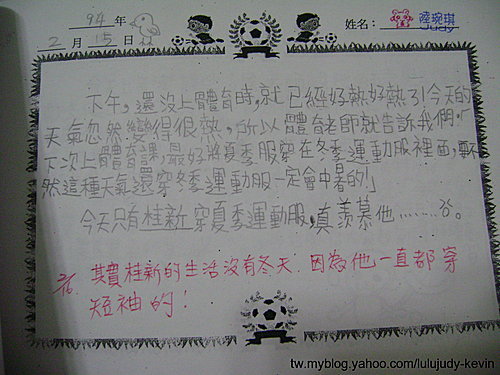 94年
2月15日
姓名：陸琬琪
Judy
下午，還沒上體育時，就已經好熱好熱了！今天的
天氣忽然變得很熱，所以體育老師就告訴我們：「
下次上體育課，最好將夏季服穿在冬季運動服裡面，要不
然這種天氣還穿冬季運動服一定會中暑的！」
今天只有桂新穿夏季運動服，真羨慕他……ㄍ。
2/16. 其實桂新的生活沒有冬天！因為他一直都穿
短袖的！
tw.myblog.yahoo.com/lulujudy-kevin